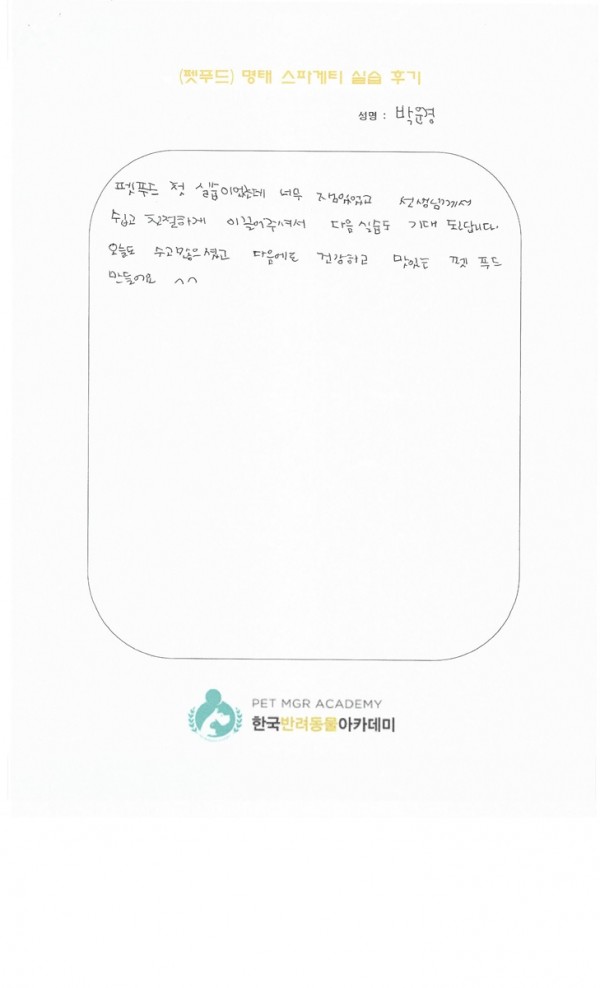 (펫푸드) 명태 스파게티 실습 후기
성명 : 박윤경
펫푸드 첫 실습이었는데 너무 재밌었고 선생님께서
쉽고 친절하게 이끌어주셔서 다음 실습도 기대 됩니다.
오늘도 수고많으셨고 다음에도 건강하고 맛있는 펫 푸드
만들어요 ^^
PET MGR ACADEMY
한국반려동물아카데미